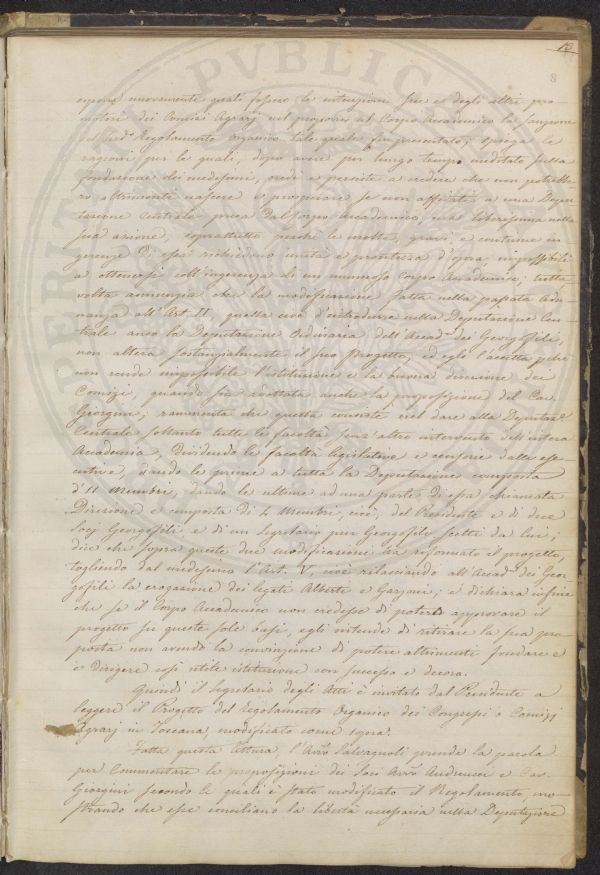 13
8
espone nuovamente quali fossero le intenzioni sue e degli altri pro-
motori dei Comizi Agrarj nel proporre al Corpo Accademico la sanzione
del Regolamento Organico tale quale fu presentato; spiega le
ragioni per le quali, dopo avere per lungo tempo meditato sulla
fondazione dei medesimi, credè e persiste a credere che non potrebbe-
ro altrimenti nascere e prosperare se non affidati a una Depu-
tazione Centrale presa dal Corpo Accademico, ma liberissima nella
sua azione, soprattutto perchè le molte, gravi e continue in-
gerenze di essa richiedono unità e prontezza d'opera, impossibili
a ottenersi coll'ingerenza di un numeroso Corpo Accademico; tutta-
volta annunzia che la modificazione fatta nella passata Adu-
nanza all'Art. II, quella cioè d'introdurre nella Deputazione Cen-
trale anco la Deputazione Ordinaria dell'Accad. dei Georgofili,
non altera sostanzialmente il suo Progetto, ed egli l'accetta perchè
non rende impossibile l'istituzione e la buona direzione dei
Comizi, quando sia adottata anche la proposizione del Cav.
Giorgini; rammenta che questa consiste nel dare alla Deputaz.e
Centrale soltanto tutte le facoltà senz'altro intervento dell'intera
Accademia, dividendo le facoltà legislative e censorie dalle ese-
cutive, dando le prime a tutta la Deputazione composta
d'11 Membri, dando le ultime ad una parte di essa chiamata
Direzione e composta di 4 Membri, cioè, del Presidente e di due
Socj Georgofili e di un Segretario pur Georgofilo scelti da Lui;
dice che sopra queste due modificazioni ha riformato il progetto,
togliendo dal medesimo l'Art. V, cioè rilasciando all'Accad. dei Geor-
gofili la erogazione dei legati Alberti e Garzoni; e dichiara infine
che se il Corpo Accademico non credesse di poter approvare il
progetto su queste sole basi, egli intende di ritirare la sua pro-
posta non avendo la convinzione di potere altrimenti fondare e
e dirigere così utile istituzione con successo e decoro.
Quindi il Segretario degli Atti è invitato dal Presidente a
leggere il Progetto del Regolamento Organico dei Congressi o Comizj
Agrarj in Toscana, modificato come sopra.
Fatta questa lettura, l'Avv. Salvagnoli prende la parola
per commentare le proposizioni dei Soci Avv. Andreucci e Cav.
Giorgini secondo le quali è stato modificato il Regolamento, mo-
strando che esse conciliano la libertà necessaria nella Deputazione